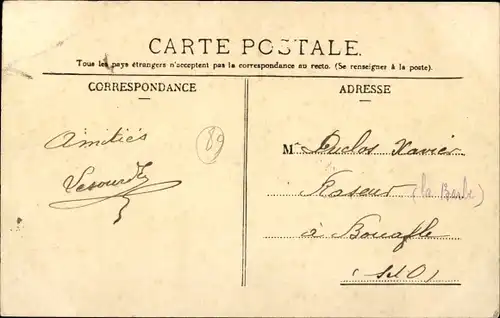 CARTE POSTALE.
Tous les pays étrangers n'acceptent pas la correspondance au recto. (Se renseigner à la poste).
CORRESPONDANCE
ADRESSE
Amitiés
89
M Duclos Xavier
Raseur (la Barbe)
à Bouafle
(S et O)